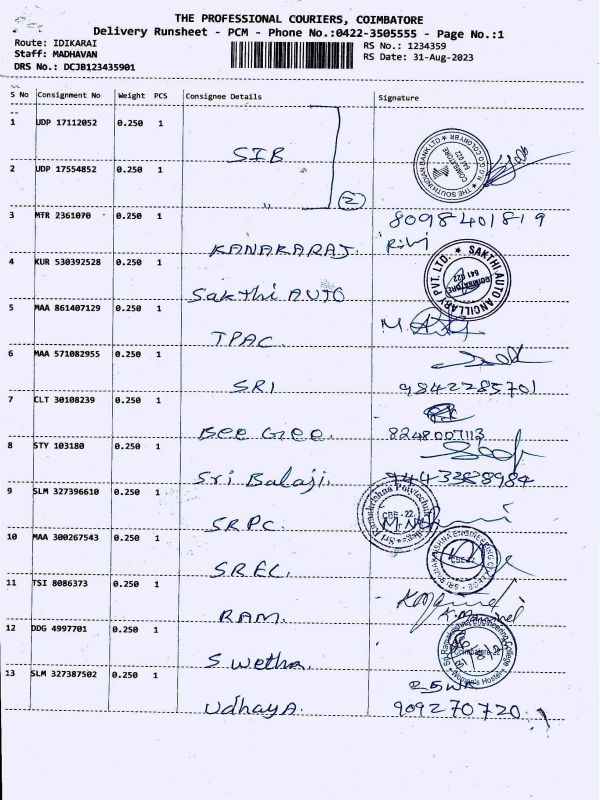 THE PROFESSIONAL COURIERS, COIMBATORE
Delivery Runsheet - PCM - Phone No.:0422-3505555 - Page No.:1
Route: IDIKARAI
Staff: MADHAVAN
DRS No.: DCJB123435901
RS No.: 1234359
RS Date: 31-Aug-2023
S No Consignment No Weight PCS Consignee Details Signature
1 UDP 17112052 0.250 1
SIB
2 UDP 17554852 0.250 1
" 2
3 MTR 2361070 0.250 1 8098401819
KANAKARAJ.
4 KUR 530392528 0.250 1
SAKTHI AUTO ANCILLARY PVT. LTD. COIMBATORE 641 022
Sakthi AUTO
5 MAA 861407129 0.250 1
TPAC.
6 MAA 571082955 0.250 1
SRI 9842285701
7 CLT 30108239 0.250 1
Bee Gee. 8248007113
8 STY 103180 0.250 1
Sri Balaji. 9443388984
9 SLM 327396610 0.250 1
Sri Ramakrishna Polytechnic College CBE - 22
SRPC.
10 MAA 300267543 0.250 1
SRI RAMAKRISHNA ENGINEERING COLLEGE CBE-22
S.R.E.C.
11 TSI 8086373 0.250 1
RAM.
12 DDG 4997701 0.250 1
Sri Ramakrishna Engineering College Coimbatore-22 Women's Hostel
Swetha.
13 SLM 327387502 0.250 1
Udhaya. 909270720